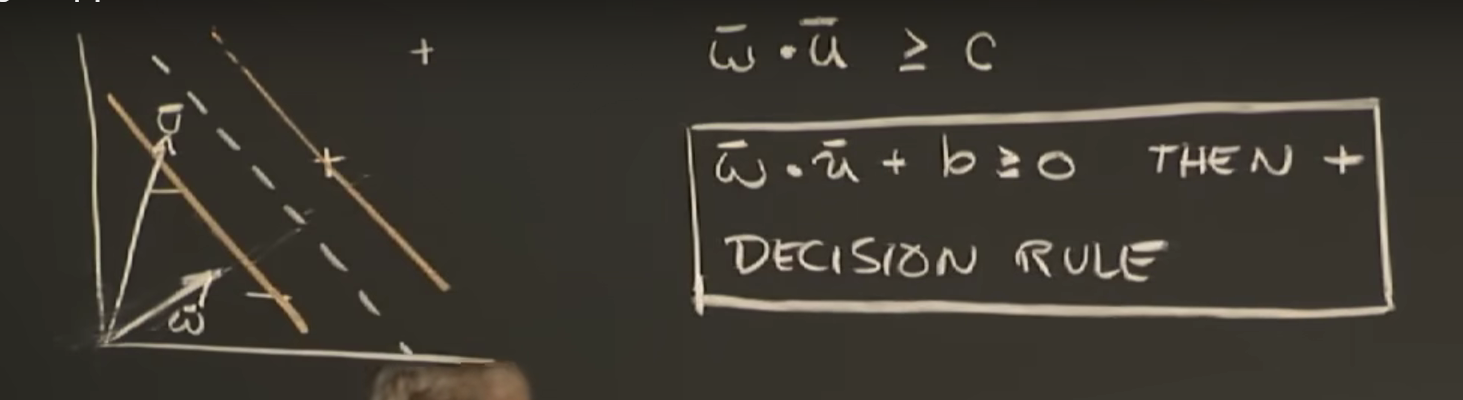 +
ū
+
w̄
w̄ · ū ≥ C
w̄ · ū + b ≥ 0 THEN +
DECISION RULE